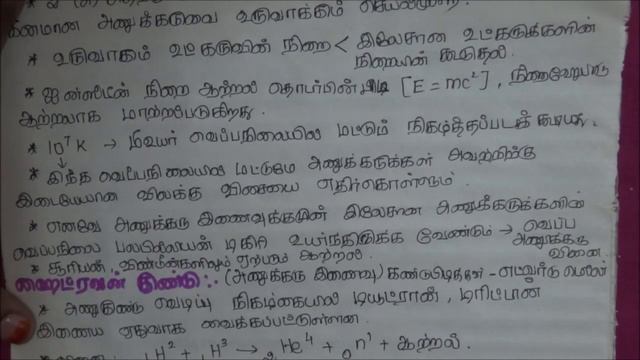 கனமான அணுக்கருவை உருவாக்கும்
* உருவாகும் உட்கருவின் நிறை < இலேசான உட்கருக்களின்
நிறையின் கூடுதல்.
* ஐன்ஸ்டீன் நிறை ஆற்றல் தொடர்பின் படி [E = mc²], நிறைவேறுபாடு
ஆற்றலாக மாற்றப்படுகிறது.
* 10⁷ K → மிஉயர் வெப்பநிலையில் மட்டும் நிகழ்த்தப்படக் கூடியது.
* இந்த வெப்பநிலையில் மட்டுமே அணுக்கருக்கள் அவற்றிற்கு
இடையேயான விலக்கு விசையை எதிர்கொள்ளும்.
* எனவே அணுக்கரு இணைவுக்குமுன் இலேசான அணுக்கருக்களின்
வெப்பநிலை பலமில்லியன் டிகிரி உயர்ந்திருக்க வேண்டும் → வெப்ப
அணுக்கரு
வினை.
* சூரியன், விண்மீன்களிலும் ஏற்படும் ஆற்றல்.
ஹைட்ரஜன் குண்டு:- (அணுக்கரு இணைவு) கண்டுபிடித்தவர் - எட்வர்டு டெல்லர்
* அணுகுண்டு வெடிப்பு நிகழ்கையில் டியூட்ரான், டிரிட்டான்
இணைய ஏதுவாக வைக்கப்பட்டுள்ளன.
₁H² + ₁H³ → ₂He⁴ + ₀n¹ + ஆற்றல்.